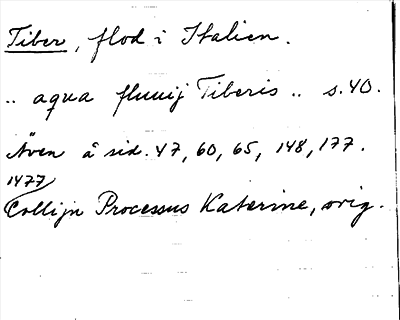 Tiber, flod i Italien.
.. aqua fluuij Tiberis .. s.40.
Även å sid. 47, 60, 65, 148, 177.
1477
Collijn Processus Katerine, orig.